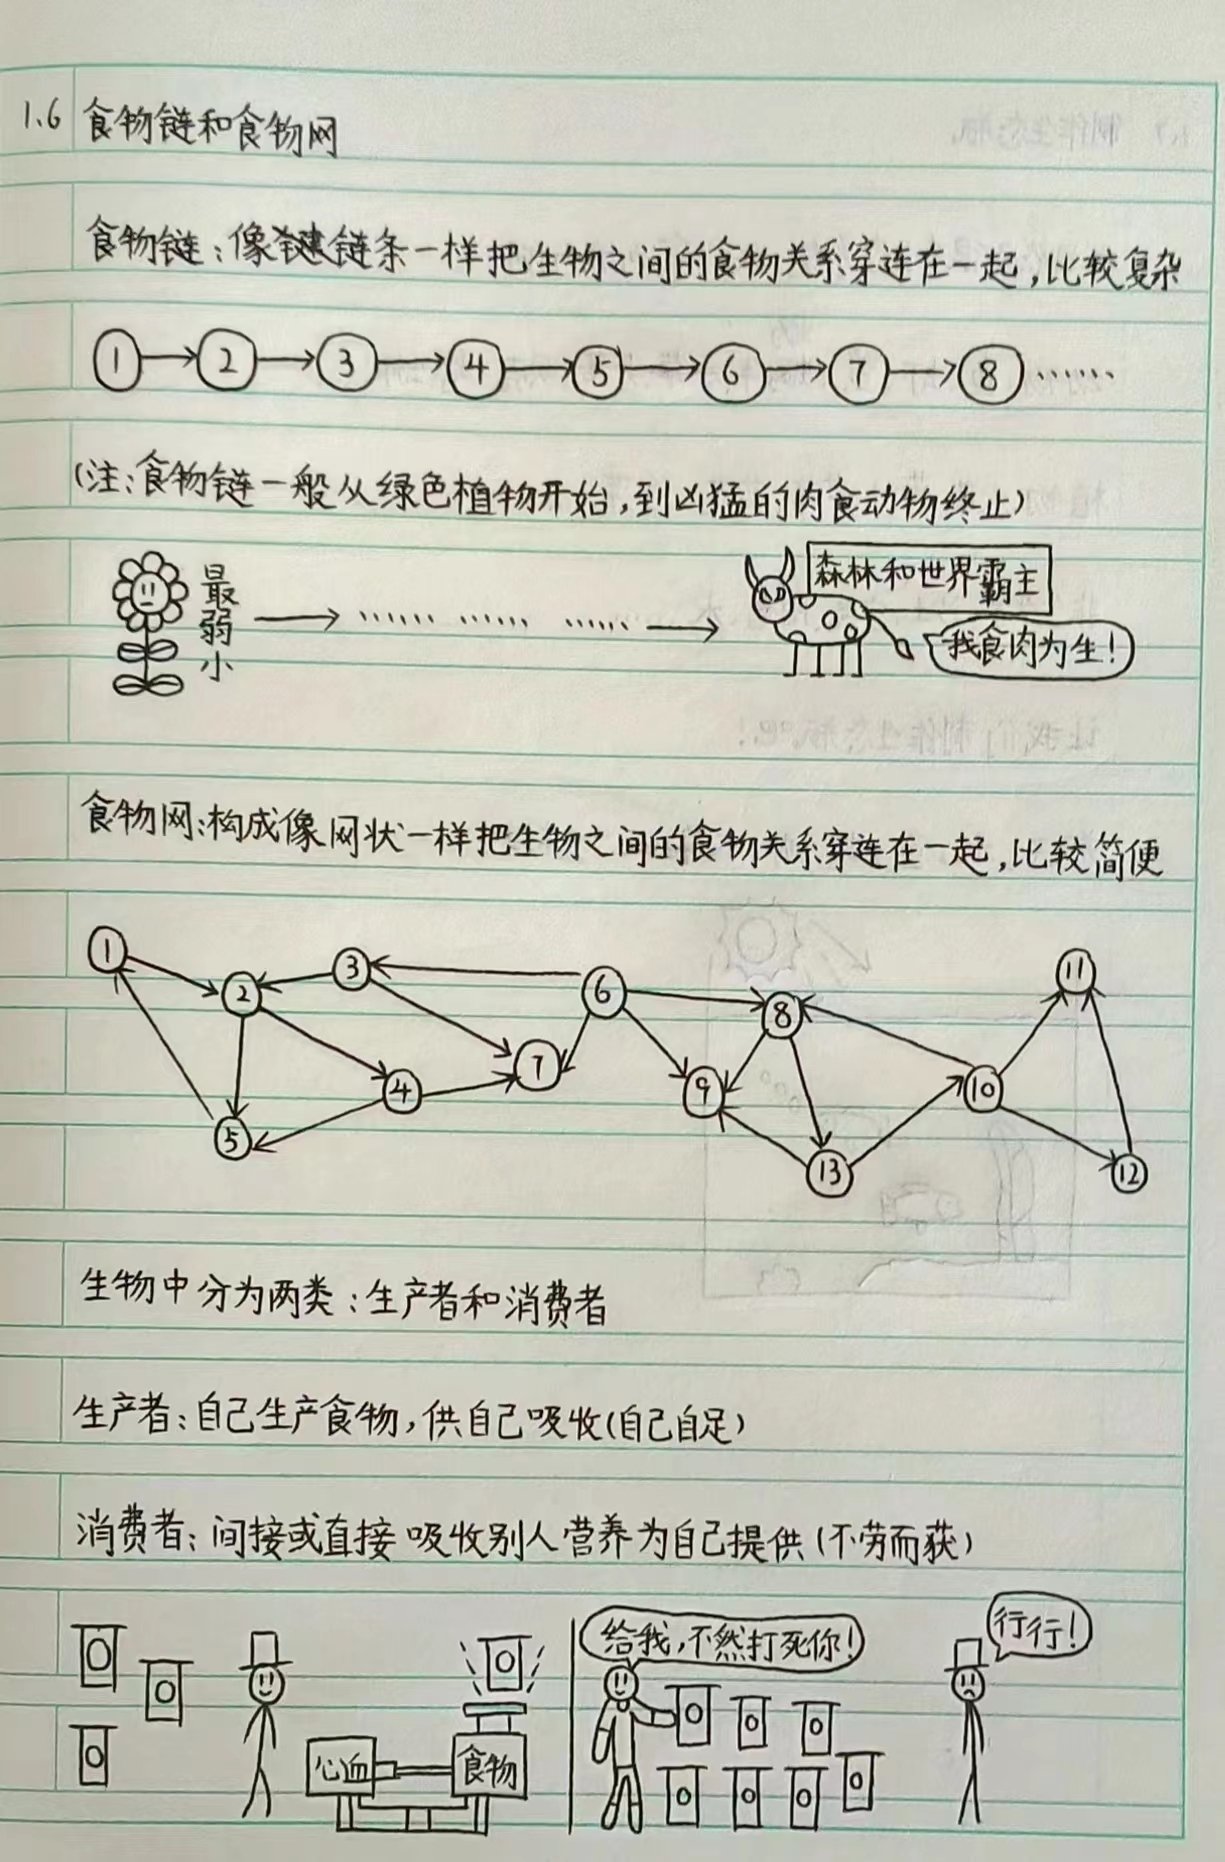 1.6 食物链和食物网
食物链:像链条一样把生物之间的食物关系穿连在一起,比较复杂
① ② ③ ④ ⑤ ⑥ ⑦ ⑧ ……
(注:食物链一般从绿色植物开始,到凶猛的肉食动物终止)
最弱小
…… …… ……
森林和世界霸主
我食肉为生!
食物网:构成像网状一样把生物之间的食物关系穿连在一起,比较简便
① ② ③ ④ ⑤ ⑥ ⑦ ⑧ ⑨ ⑩ ⑪ ⑫ ⑬
生物中分为两类:生产者和消费者
生产者:自己生产食物,供自己吸收(自己自足)
消费者:间接或直接吸收别人营养为自己提供(不劳而获)
心血
食物
给我,不然打死你!
行行!